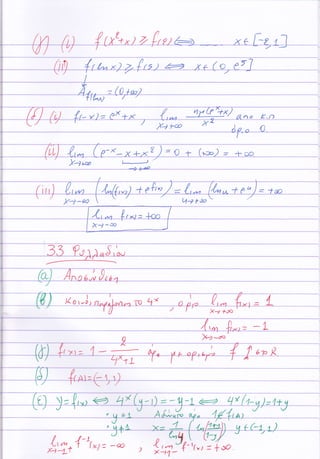 (γ) (i) f(x²+x) ≥ f(2) ⟺ ........ x ∈ [-2,1]
(ii) f(lnx) ≥ f(5) ⟺ x ∈ (0, e⁵]
A f(lnx) = (0,+∞)
(δ) (i) f(-x) = eˣ + x , lim x→+∞ ημ(eˣ+x) / x² από κ.π
όριο 0.
(ii) lim x→+∞ (e⁻ˣ - x + x²) = 0 + (+∞) = +∞
→+∞
(iii) lim x→-∞ (ln f(x) + e^f(x)) = lim u→+∞ (lnu + eᵘ) = +∞
lim x→-∞ f(x) = +∞
33 Φυλλαδίου
(α) Απόδειξη
(β) Κοινός παράγοντας το 4ˣ , όριο lim x→+∞ f(x) = 1
lim x→-∞ f(x) = -1
(γ) f(x) = 1 - 2 / 4ˣ+1 άρα με ορισμό f ↑ στο R
(δ) f(A) = (-1,1)
(ε) y = f(x) ⟺ 4ˣ(y-1) = -y-1 ⟺ 4ˣ(1-y) = 1+y
• y=1 Αδύνατο άρα 1∉f(A)
• y≠1 x = 1/ln4 (ln (1+y)/(1-y)) y ∈ (-1,1)
lim x→-1⁺ f⁻¹(x) = -∞ , lim x→1⁻ f⁻¹(x) = +∞